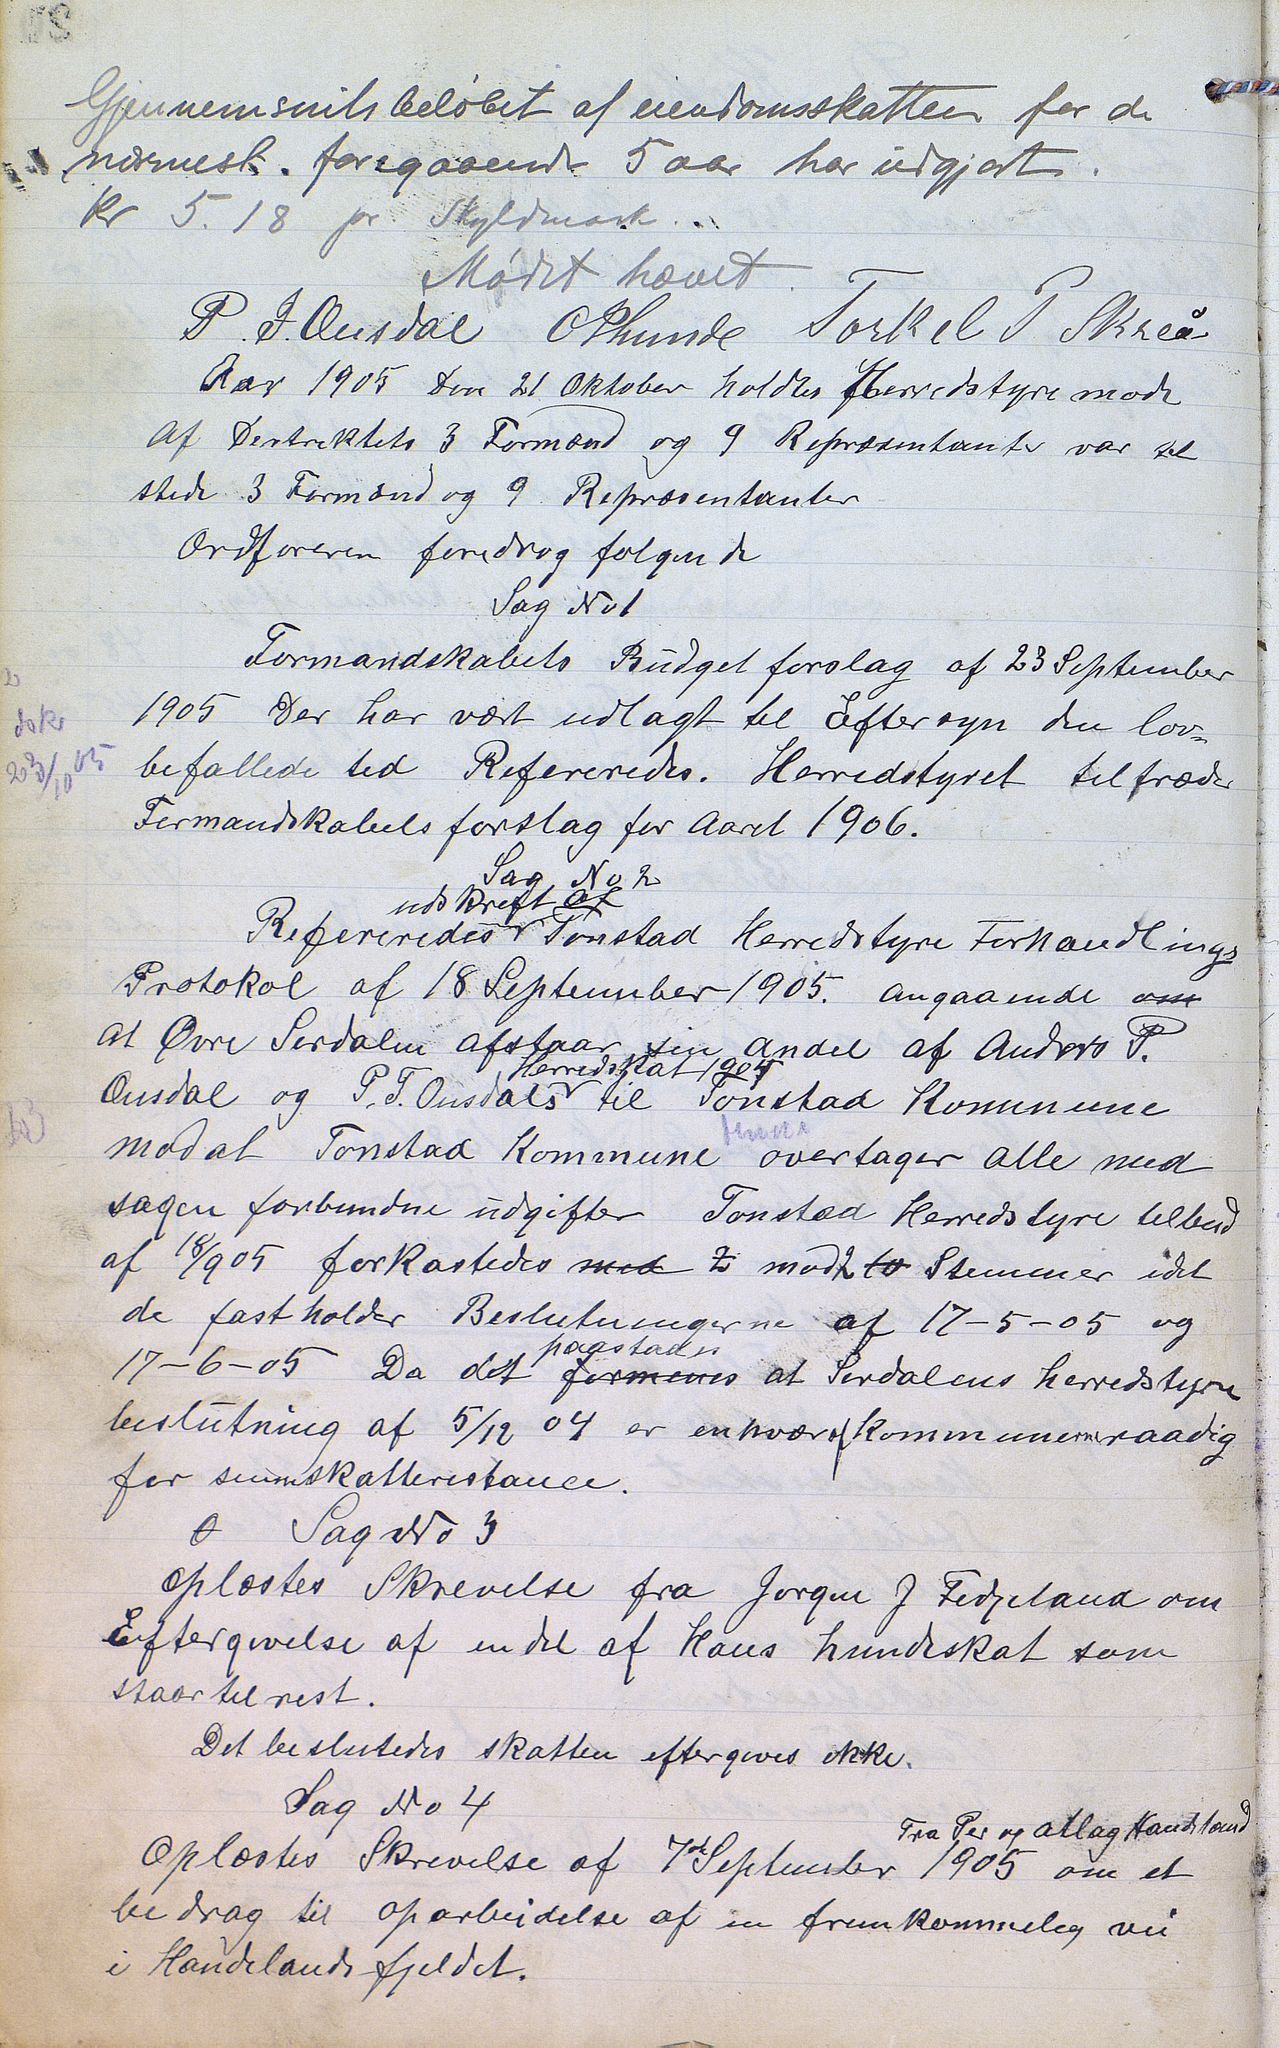 Gjennemsnitsbeløbet af eiendomsskatten for de
nærmest foregaaende 5 aar har udgjort.
Kr 5.18 pr. Skyldmark...
Mødet hævet.
P. J. Ousdal O P Lunde Torkel P Skreå
Aar 1905 den 21 Oktober holdtes Herredstyremøde
af Destriktets 3 Formænd og 9 Repræsentanter var til
stede 3 Formænd og 9 Repræsentanter
Ordføreren foredrog følgende
Sag No 1
Formandskabets Budgetforslag af 23 September
1905 Der har vært udlagt til Eftersyn den lov-
befallede tid Refereredes. Herredstyret tiltræder
Formandskabets forslag for Aaret 1906.
Sag No 2
udskreft af
Refereredes Tonstad Herredstyre Forhandlings
Protokol af 18 September 1905. angaaende om
at Øvre Serdalen afstaar sin andel af Anders P.
Herredskat 1904
Ousdal og P. T. Ousdals til Tonstad Kommune
mod at Tonstad Kommune overtager alle med
sagen forbundne udgifter Tonstad Herredstyre tilbud
af 18/9 05 forkastedes med 2 mod 2 to Stemmer idet
de fastholder Beslutningerne af 17-5-05 og
paastades
17-6-05 Da det formenes at Serdalens herredstyre
beslutning af 5/12 04 er enhver af Kommunerne raadig
for sinn skatterestance.
Sag No 3
Oplæstes Skrevelse fra Jørgen J Fidjeland om
Eftergivelse af en del af Hans hundeskat som
staar til rest.
Det beslutedes skatten eftergives ikke.
Sag No 4
Fra Per og Atlag Handeland
Oplæstes Skrevelse af 7de September 1905 om et
bedrag til oparbeidelse af en fremkommeleg vei
i Handelandsfjeldet.
dskr
23/10 05